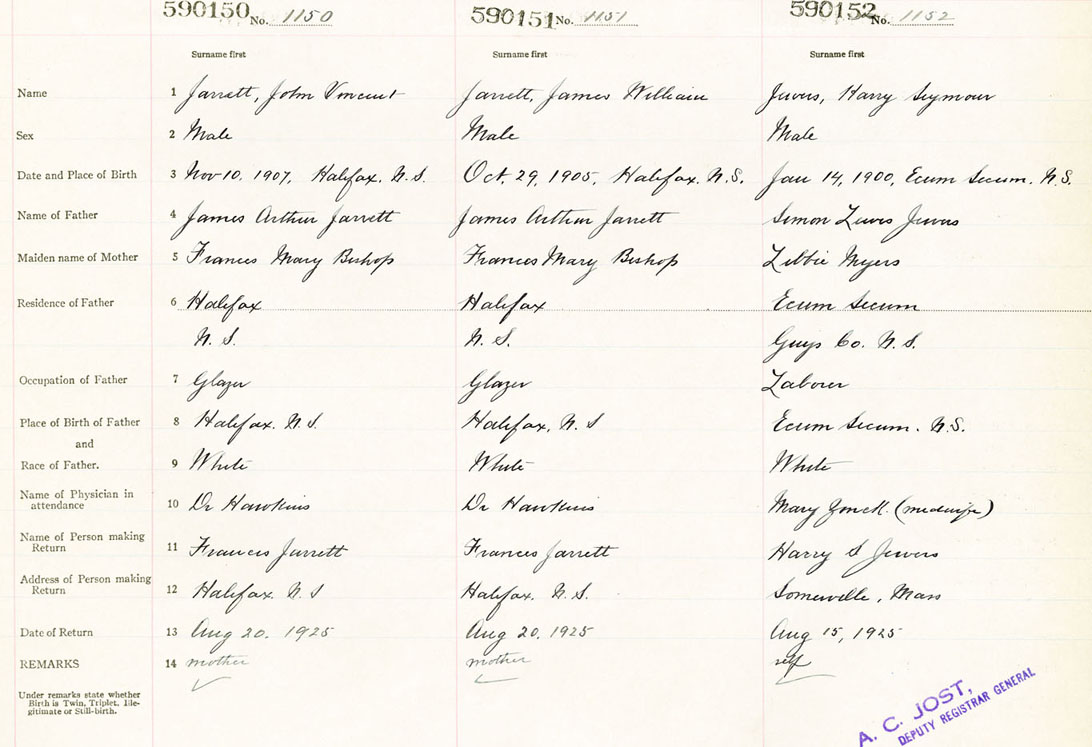 590150 No. 1150 590151 No. 1151 590152 No. 1152
Surname first Surname first Surname first
Name 1 Jarrett, John Vincent Jarrett, James William Jewers, Harry Seymour
Sex 2 Male Male Male
Date and Place of Birth 3 Nov 10. 1907, Halifax. N.S. Oct. 29, 1905, Halifax. N.S. Jan 14, 1900, Ecum Secum. N.S.
Name of Father 4 James Arthur Jarrett James Arthur Jarrett Simon Lewis Jewers
Maiden name of Mother 5 Frances Mary Bishop Frances Mary Bishop Libbie Myers
Residence of Father 6 Halifax Halifax Ecum Secum
N. S. N. S. Guys Co. N. S.
Occupation of Father 7 Glazer Glazer Laborer
Place of Birth of Father 8 Halifax. N.S. Halifax, N. S Ecum Secum. N.S.
and
Race of Father. 9 White White White
Name of Physician in
attendance 10 Dr Hawkins Dr Hawkins Mary (midwife)
Name of Person making
Return 11 Frances Jarrett Frances Jarrett Harry S Jewers
Address of Person making
Return 12 Halifax. N. S Halifax. N. S. Somerville, Mass
Date of Return 13 Aug 20. 1925 Aug 20. 1925 Aug 15, 1925
REMARKS 14 mother mother self
Under remarks state whether
Birth is Twin, Triplet, Ille-
gitimate or Still-birth.
A. C. JOST,
DEPUTY REGISTRAR GENERAL